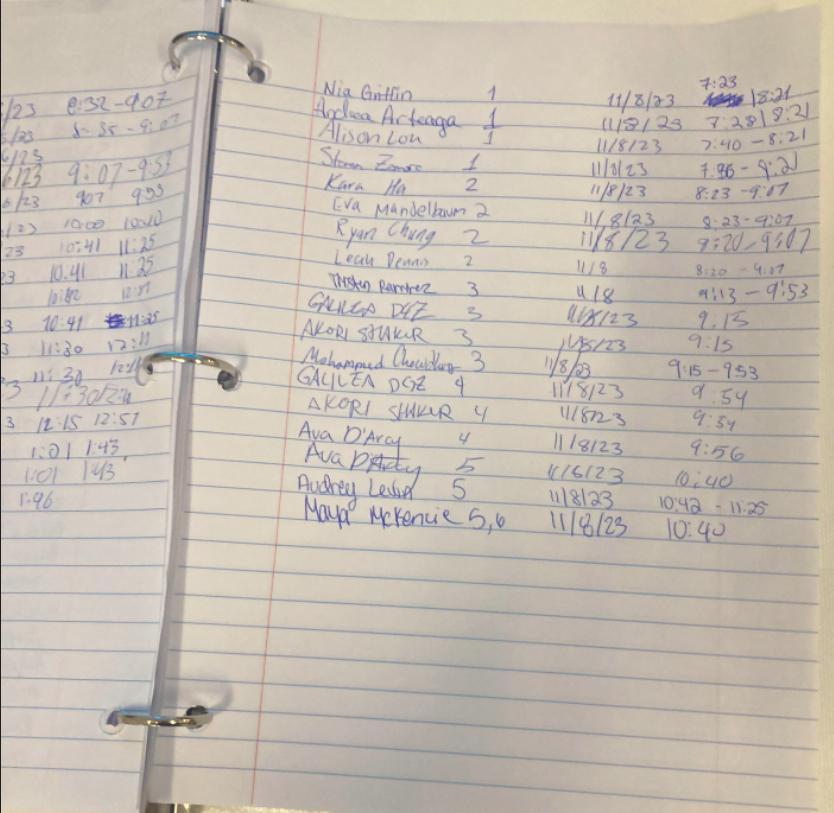 /23 8:32-9:07
/23 8:35-9:07
6/23
6/23 9:07-9:53
6/23 907 953
/23 10:00 10:40
23 10:41 11:25
23 10.41 11:25
3 10:41 11:25
3 11:30 12:11
11:30
3 12:15 12:57
1:01 1:43
1:01 1:43
1:46
7:23
Nia Griffin 1 11/8/23 8:21
Andrea Arteaga 1 11/8/23 7:28 8:21
Alison Lou 1 11/8/23 7:40 - 8:21
1 11/8/23
Kara Ha 2 11/8/23 8:23-9:07
Eva Mandelbaum 2 11/8/23 8-23-9:07
Ryan Chung 2 11/8/23 8:20-9:07
Leah Dennis 2 11/8 8:20 - 9:07
Tristen Ramirez 3 11/8 9:13 - 9:53
GALILEA DGZ 3 11/8/23 9:15
AKORI SHAKUR 3 11/8/23 9:15
Mohammed 3 11/8/23 9:15-953
GALILEA DGZ 4 11/8/23 9:54
AKORI SHAKUR 4 11/8/23 9:54
Ava D'Arcy 4 11/8/23 9:56
Ava D'Arcy 5 11/8/23 10:40
Audrey 5 11/8/23 10:42 - 11:25
Maya McKenzie 5,6 11/8/23 10:40